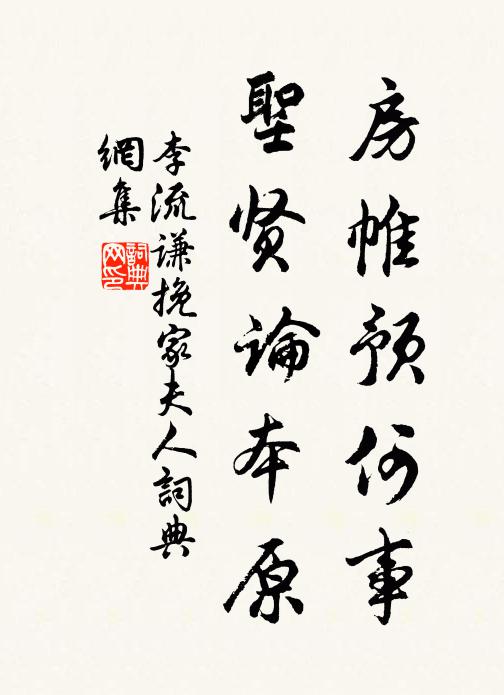 房帷预何事
聖贤論本原
李流谦挽家夫人詞典
網集
詞典
网印